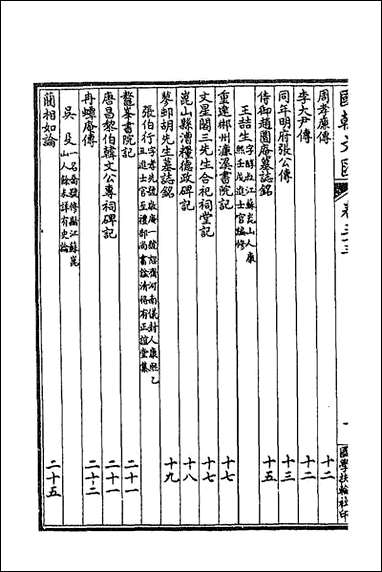 國朝文匯 卷三十三 國學扶輪社印
周孝廉傳 十二
李大尹傳 十二
同年明府張公傳 十三
侍御趙園庵墓誌銘 十五
王喆生 字醇叔江蘇崑山人康熙壬戌進士官編修
重建郴州濂溪書院記 十七
文星閣三先生合祀祠堂記 十七
崑山縣漕糧德政碑記 十八
蓼邨胡先生墓誌銘 十九
張伯行 字孝先號敬庵一號恕齋河南儀封人康熙乙丑進士官至禮部尚書諡清恪有正誼堂集
鰲峯書院記 二十一
唐昌黎伯韓文公專祠碑記 二十一
冉蟫庵傳 二十二
吳殳 一名喬號修齡江蘇崑山人餘未詳有史論
藺相如論 二十五